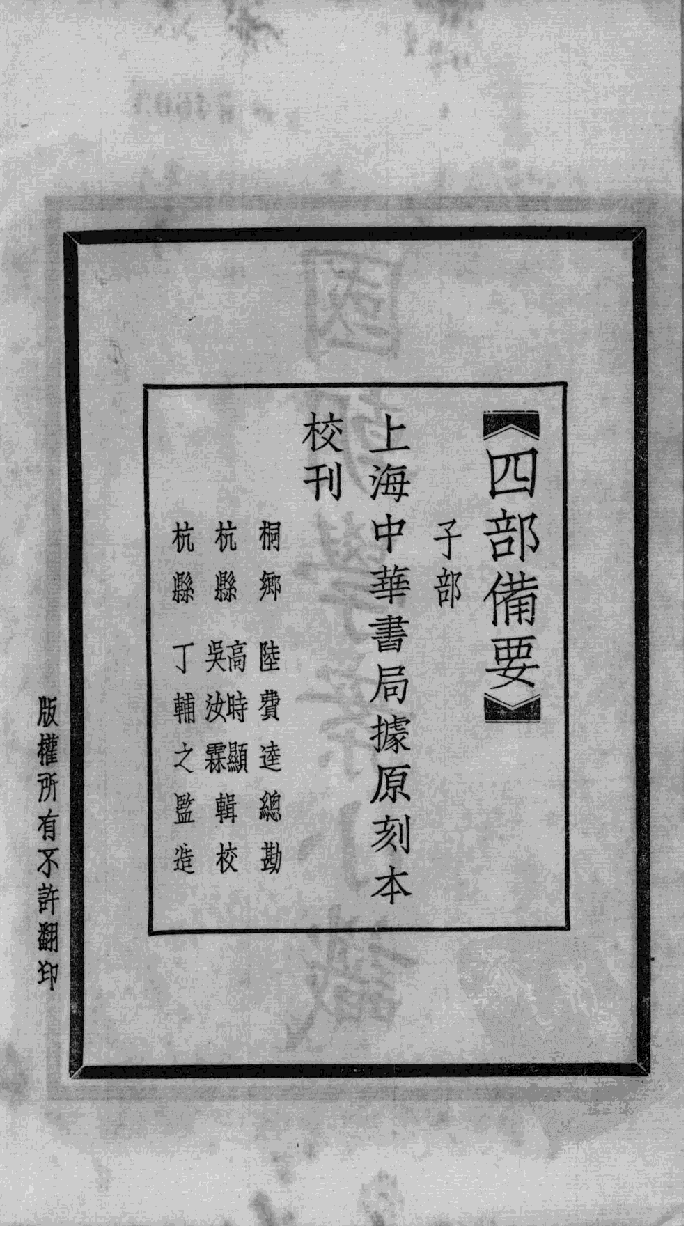 【四部備要】
子部
上海中華書局據原刻本
校刊
桐鄉 陸費逵總勘
杭縣 高時顯 吳汝霖 輯校
杭縣 丁輔之監造
版權所有不許翻印